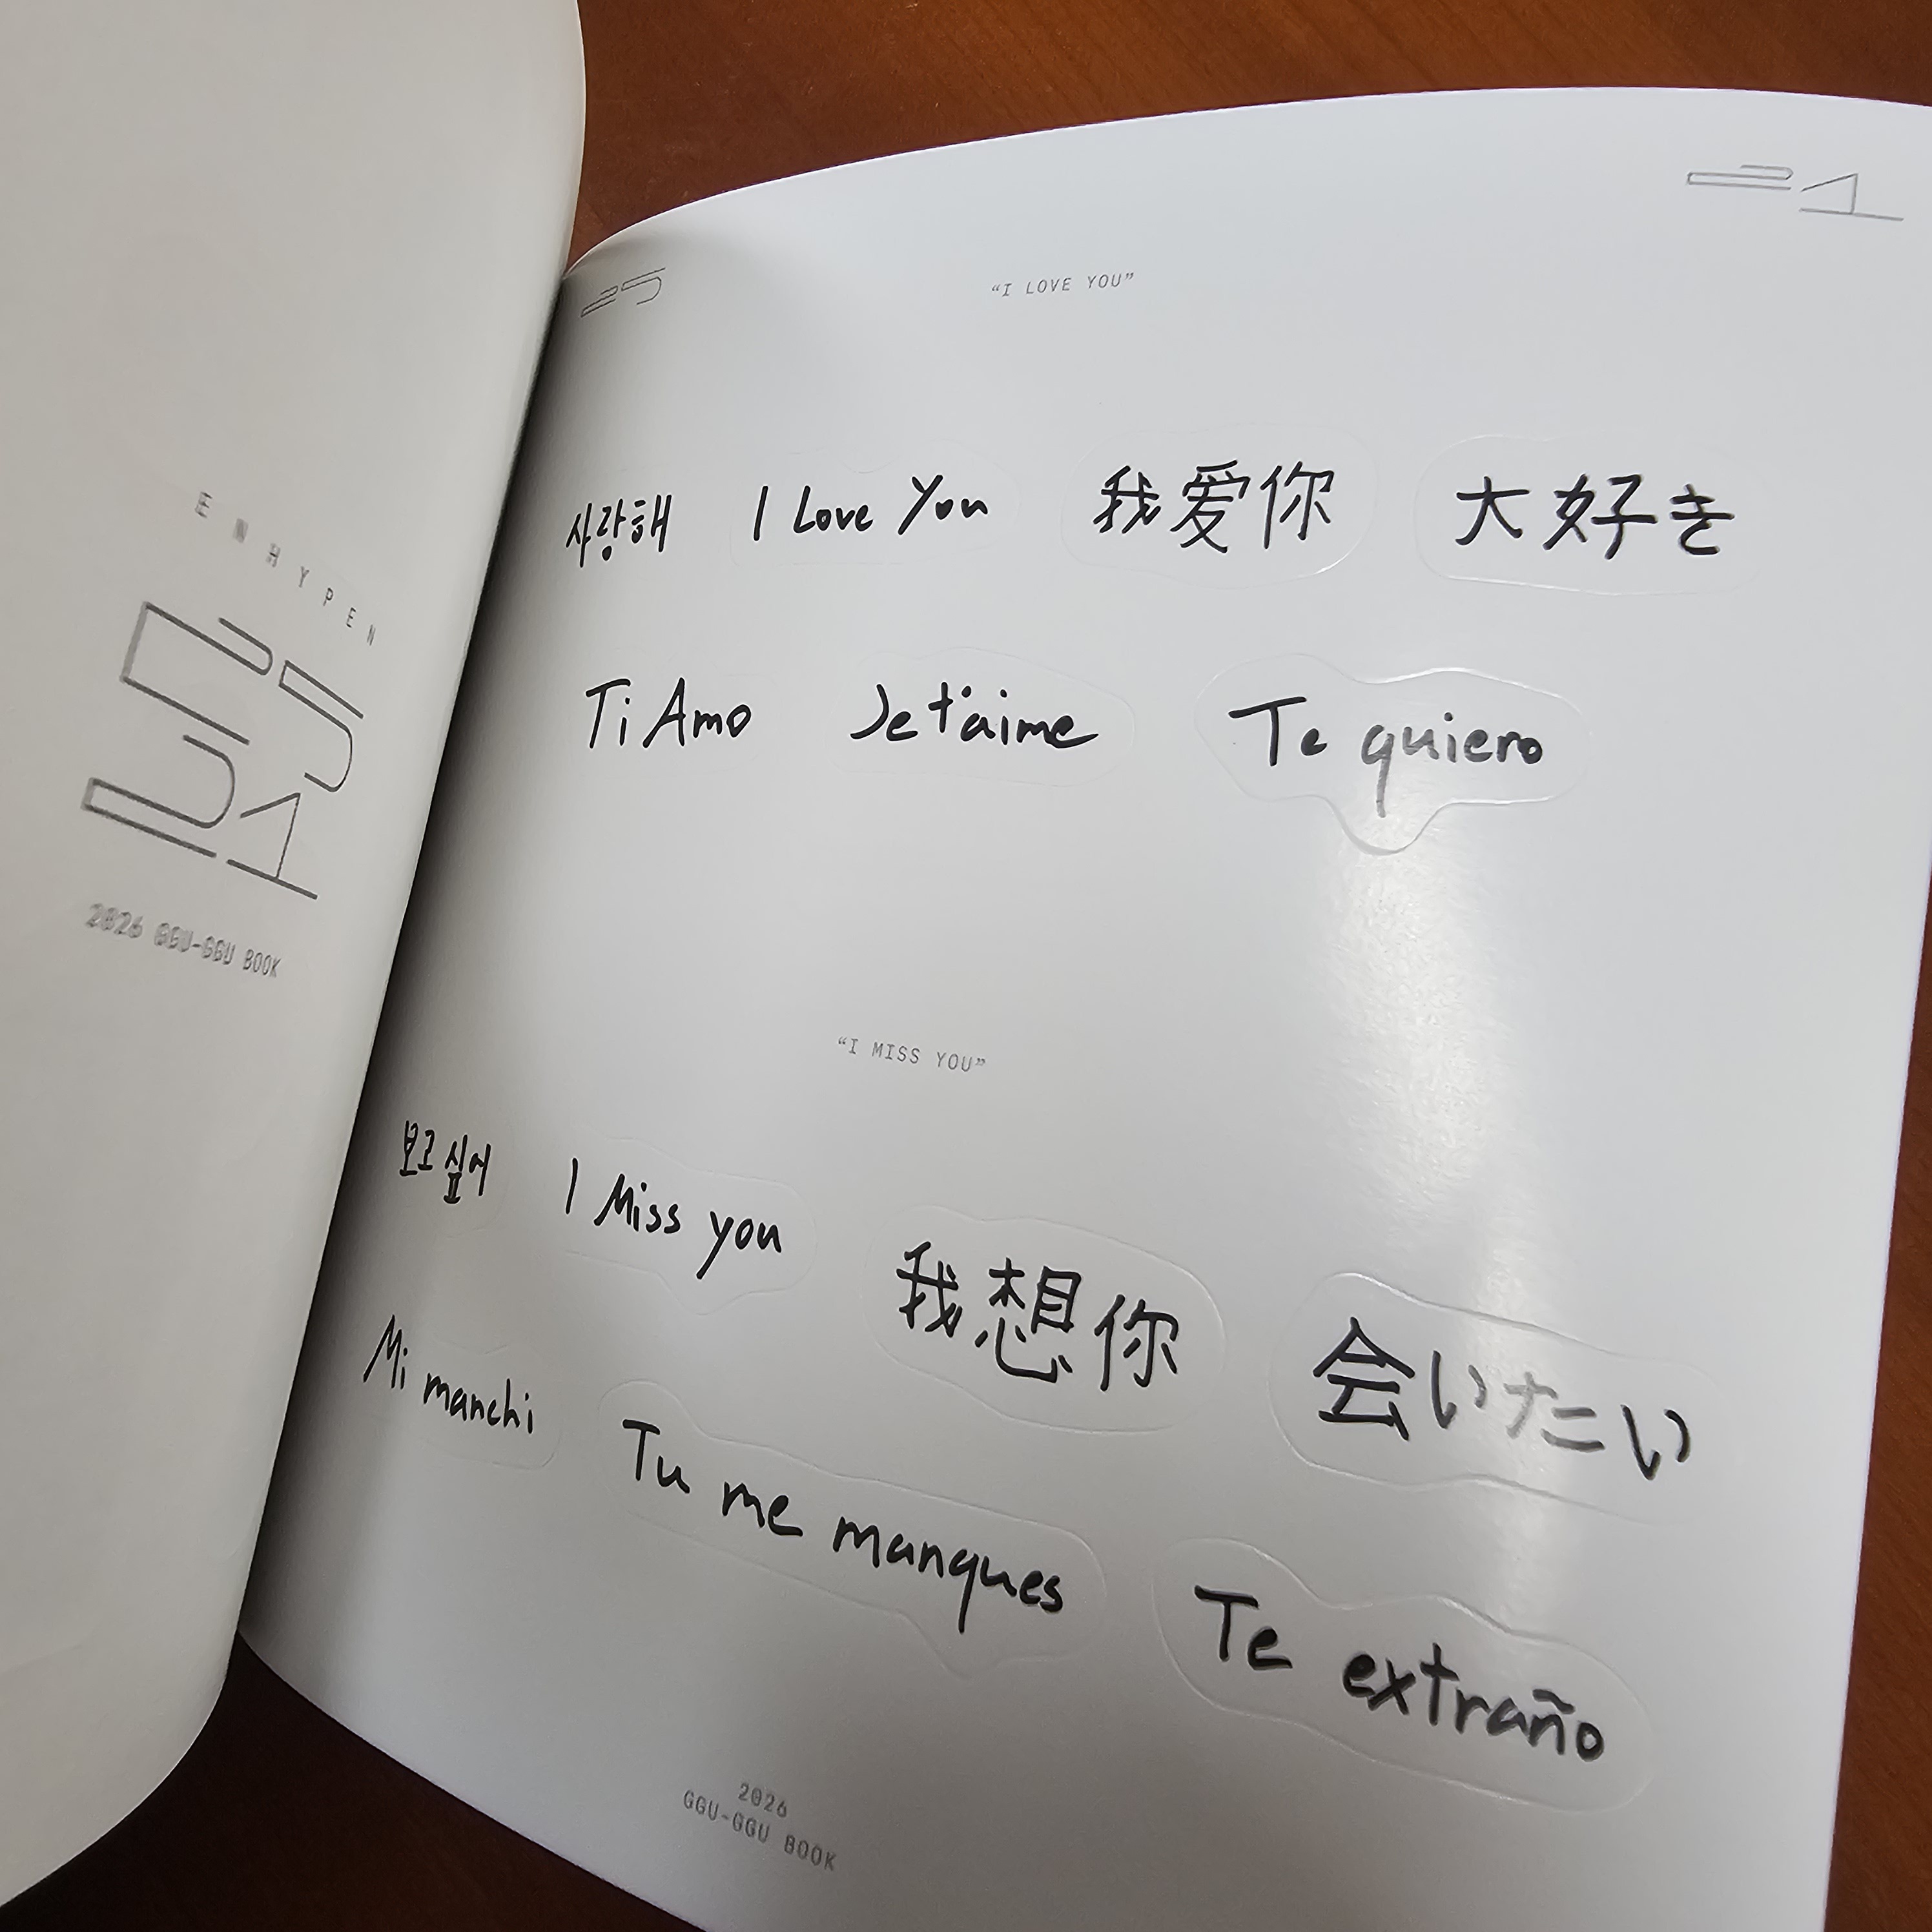 ENHYPEN
25
21
2026 GGU-GGU BOOK
25
21
“I LOVE YOU”
사랑해 I Love You 我爱你 大好き
Ti Amo Je t'aime Te quiero
“I MISS YOU”
보고싶어 I Miss you 我想你 会いたい
Mi manchi Tu me manques Te extraño
2026
GGU-GGU BOOK